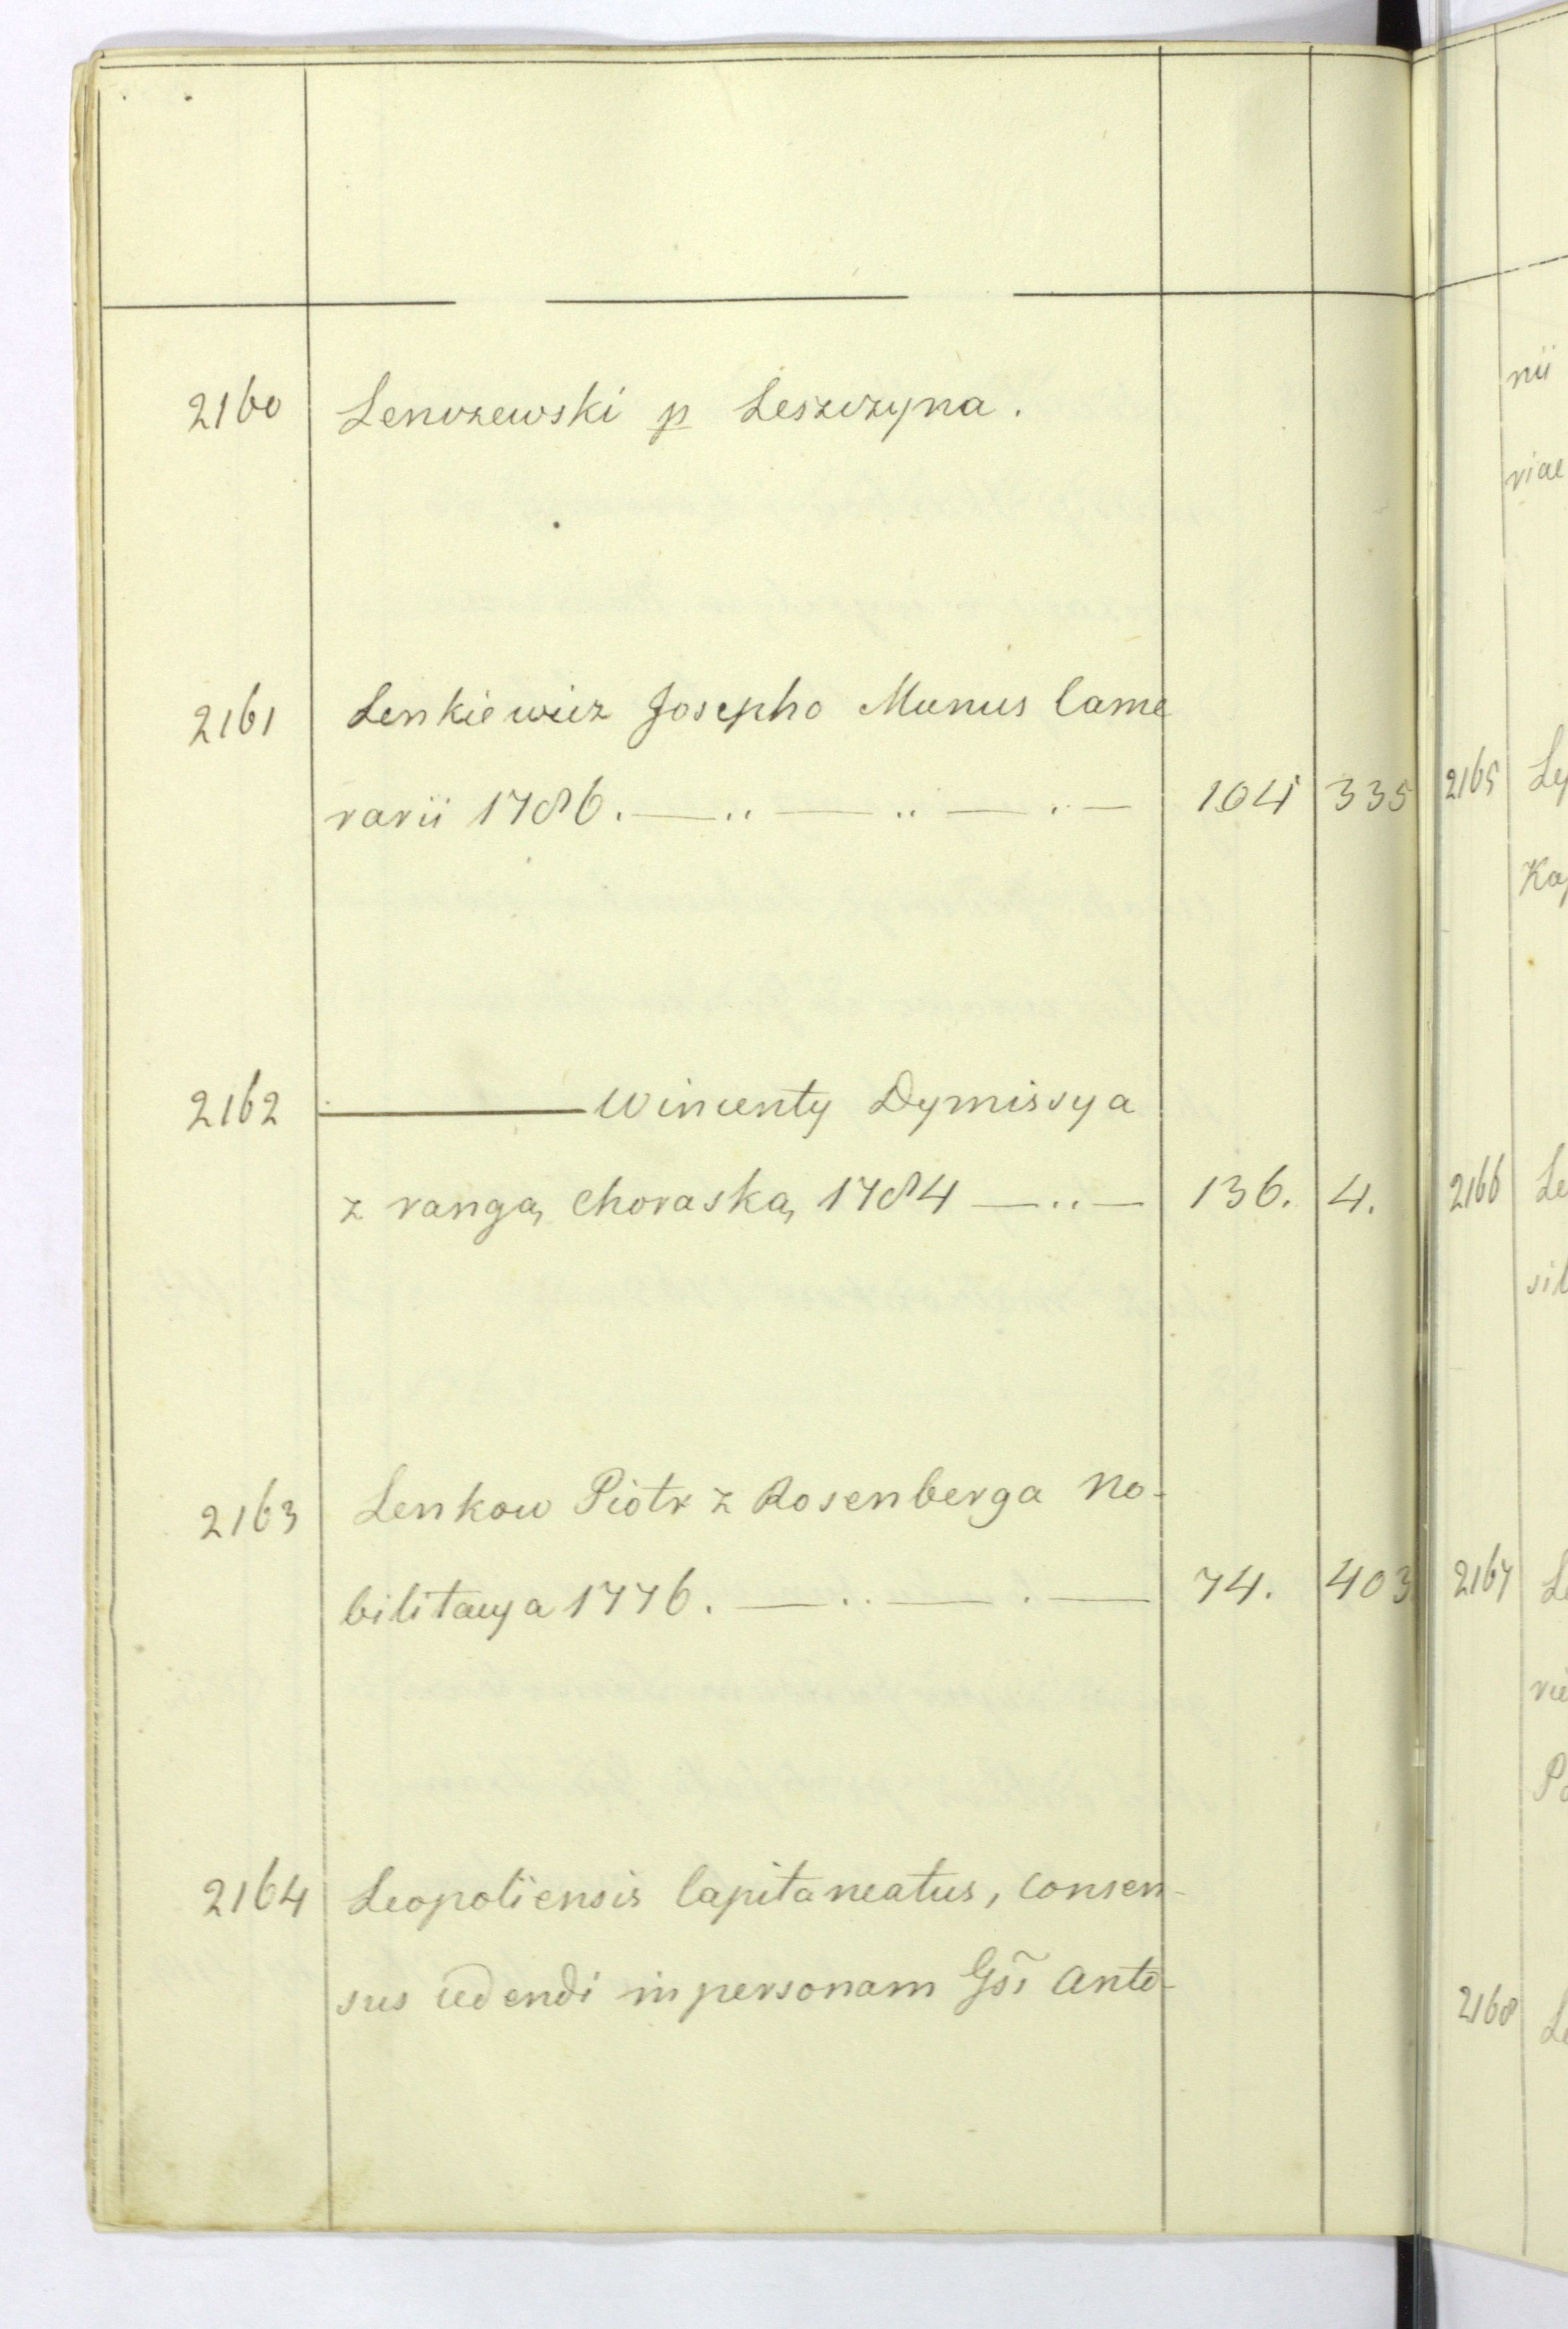 2160 Lenczewski p Leszczyna.
2161 Lenkiewicz Josepho Munus Came
rarii 1786. — .. — .. — .. — 104 335
2162 ——— Wincenty Dymissya
z rangą Choraską 1784 — .. — 136. 4.
2163 Lenkow Piotr z Rosenberga No-
bilitacya 1776. — .. — . — 74. 403
2164 Leopoliensis Capitaneatus, consen-
sus cedendi in personam Gsi Anto-
nii
riae
2165 Ly
Kap
2166 Le
sil
2167 Le
Po
2168 Le